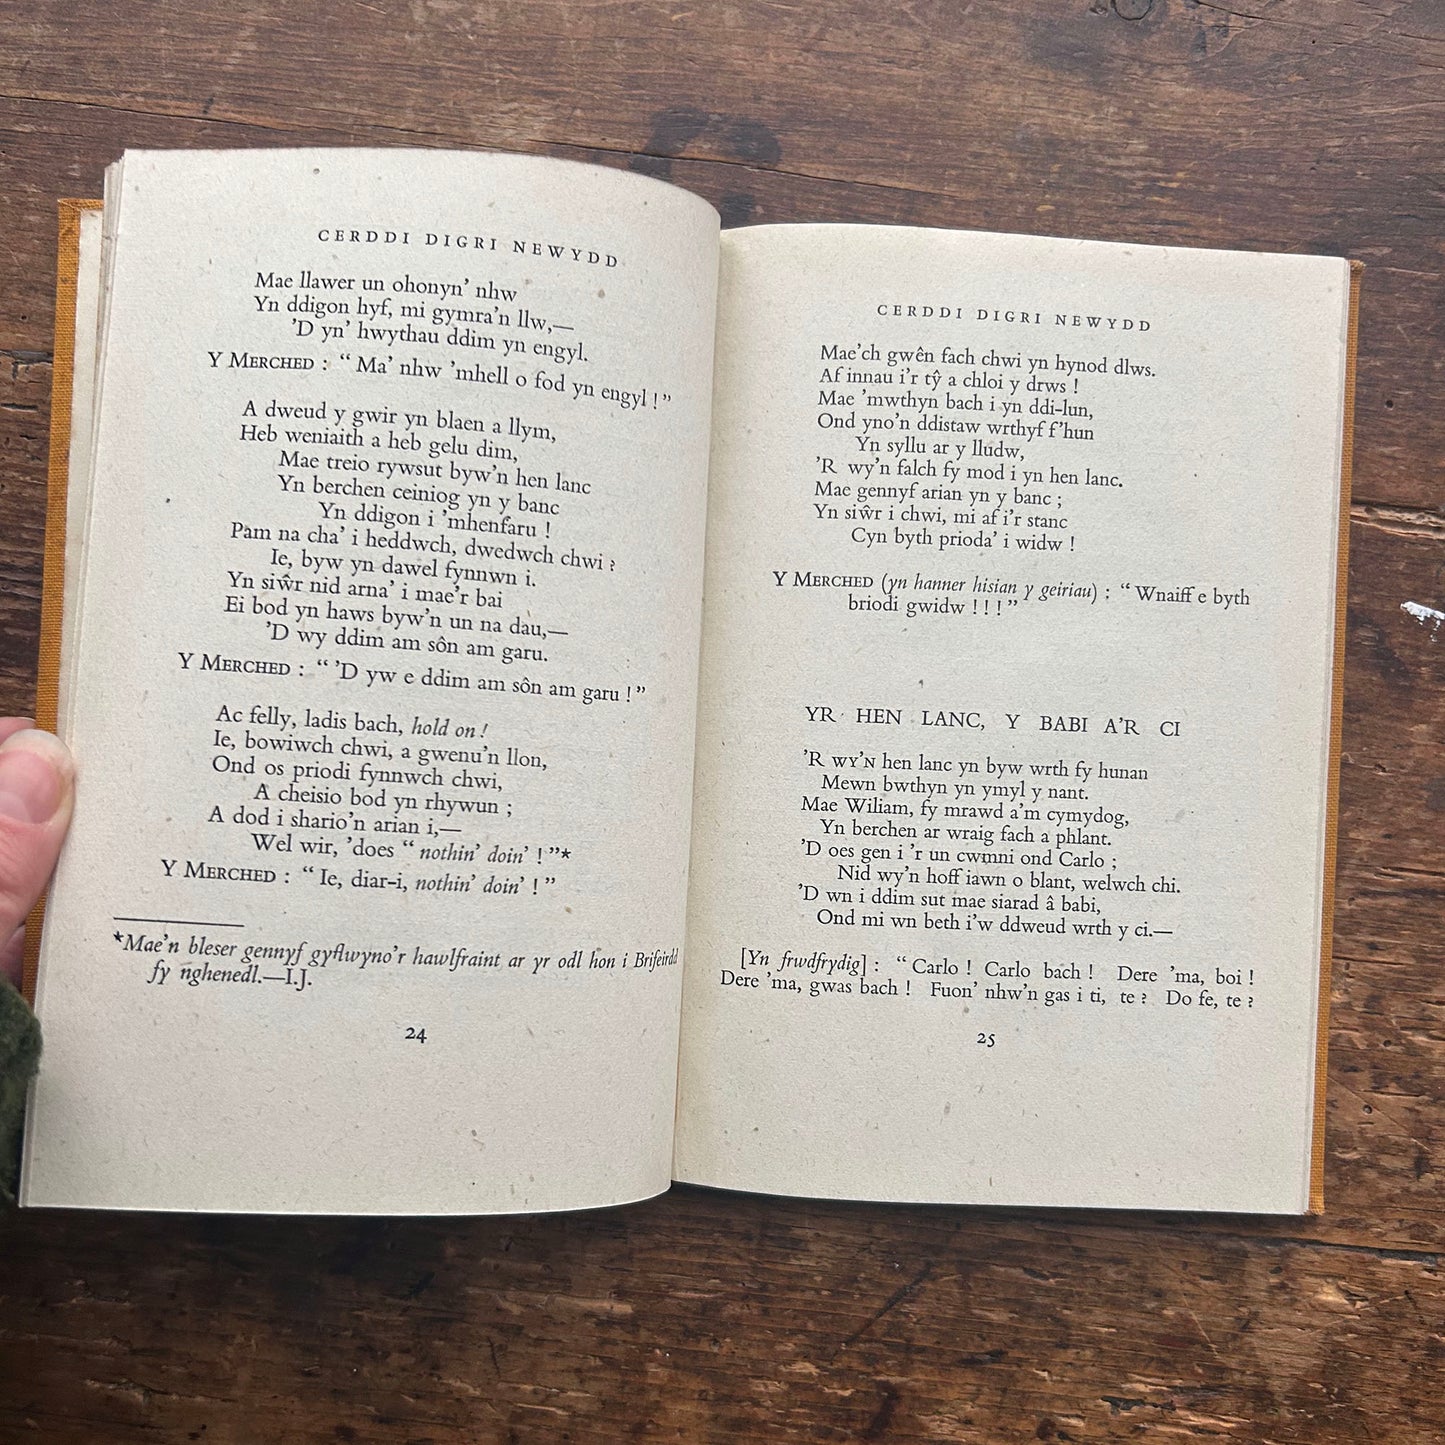 CERDDI DIGRI NEWYDD
Mae llawer un ohonyn' nhw
Yn ddigon hyf, mi gymra'n llw,—
'D yn' hwythau ddim yn engyl.
Y MERCHED : “ Ma' nhw 'mhell o fod yn engyl ! ”
A dweud y gwir yn blaen a llym,
Heb weniaith a heb gelu dim,
Mae treio rywsut byw'n hen lanc
Yn berchen ceiniog yn y banc
Yn ddigon i 'mhenfaru !
Pam na cha' i heddwch, dwedwch chwi ?
Ie, byw yn dawel fynnwn i.
Yn siŵr nid arna' i mae'r bai
Ei bod yn haws byw'n un na dau,—
'D wy ddim am sôn am garu.
Y MERCHED : “ 'D yw e ddim am sôn am garu ! ”
Ac felly, ladis bach, hold on !
Ie, bowiwch chwi, a gwenu'n llon,
Ond os priodi fynnwch chwi,
A cheisio bod yn rhywun ;
A dod i shario'n arian i,—
Wel wir, 'does “ nothin' doin' ! ”*
Y MERCHED : “ Ie, diar-i, nothin' doin' ! ”
*Mae'n bleser gennyf gyflwyno'r hawlfraint ar yr odl hon i Brifeirdd
fy nghenedl.—I.J.
24
CERDDI DIGRI NEWYDD
Mae'ch gwên fach chwi yn hynod dlws.
Af innau i'r tŷ a chloi y drws !
Mae 'mwthyn bach i yn ddi-lun,
Ond yno'n ddistaw wrthyf f'hun
Yn syllu ar y lludw,
'R wy'n falch fy mod i yn hen lanc.
Mae gennyf arian yn y banc ;
Yn siŵr i chwi, mi af i'r stanc
Cyn byth prioda' i widw !
Y MERCHED (yn hanner hisian y geiriau) : “ Wnaiff e byth
briodi gwidw ! ! ! ”
YR HEN LANC, Y BABI A'R CI
'R WY'N hen lanc yn byw wrth fy hunan
Mewn bwthyn yn ymyl y nant.
Mae Wiliam, fy mrawd a'm cymydog,
Yn berchen ar wraig fach a phlant.
'D oes gen i 'r un cwmni ond Carlo ;
Nid wy'n hoff iawn o blant, welwch chi.
'D wn i ddim sut mae siarad â babi,
Ond mi wn beth i'w ddweud wrth y ci.—
[Yn frwdfrydig] : “ Carlo ! Carlo bach ! Dere 'ma, boi !
Dere 'ma, gwas bach ! Fuon' nhw'n gas i ti, te ? Do fe, te ?
25